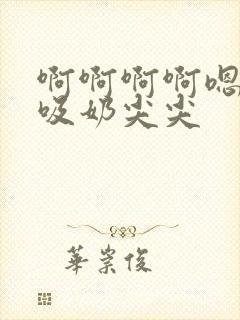 啊啊啊啊嗯
吸奶尖尖
華崇俊